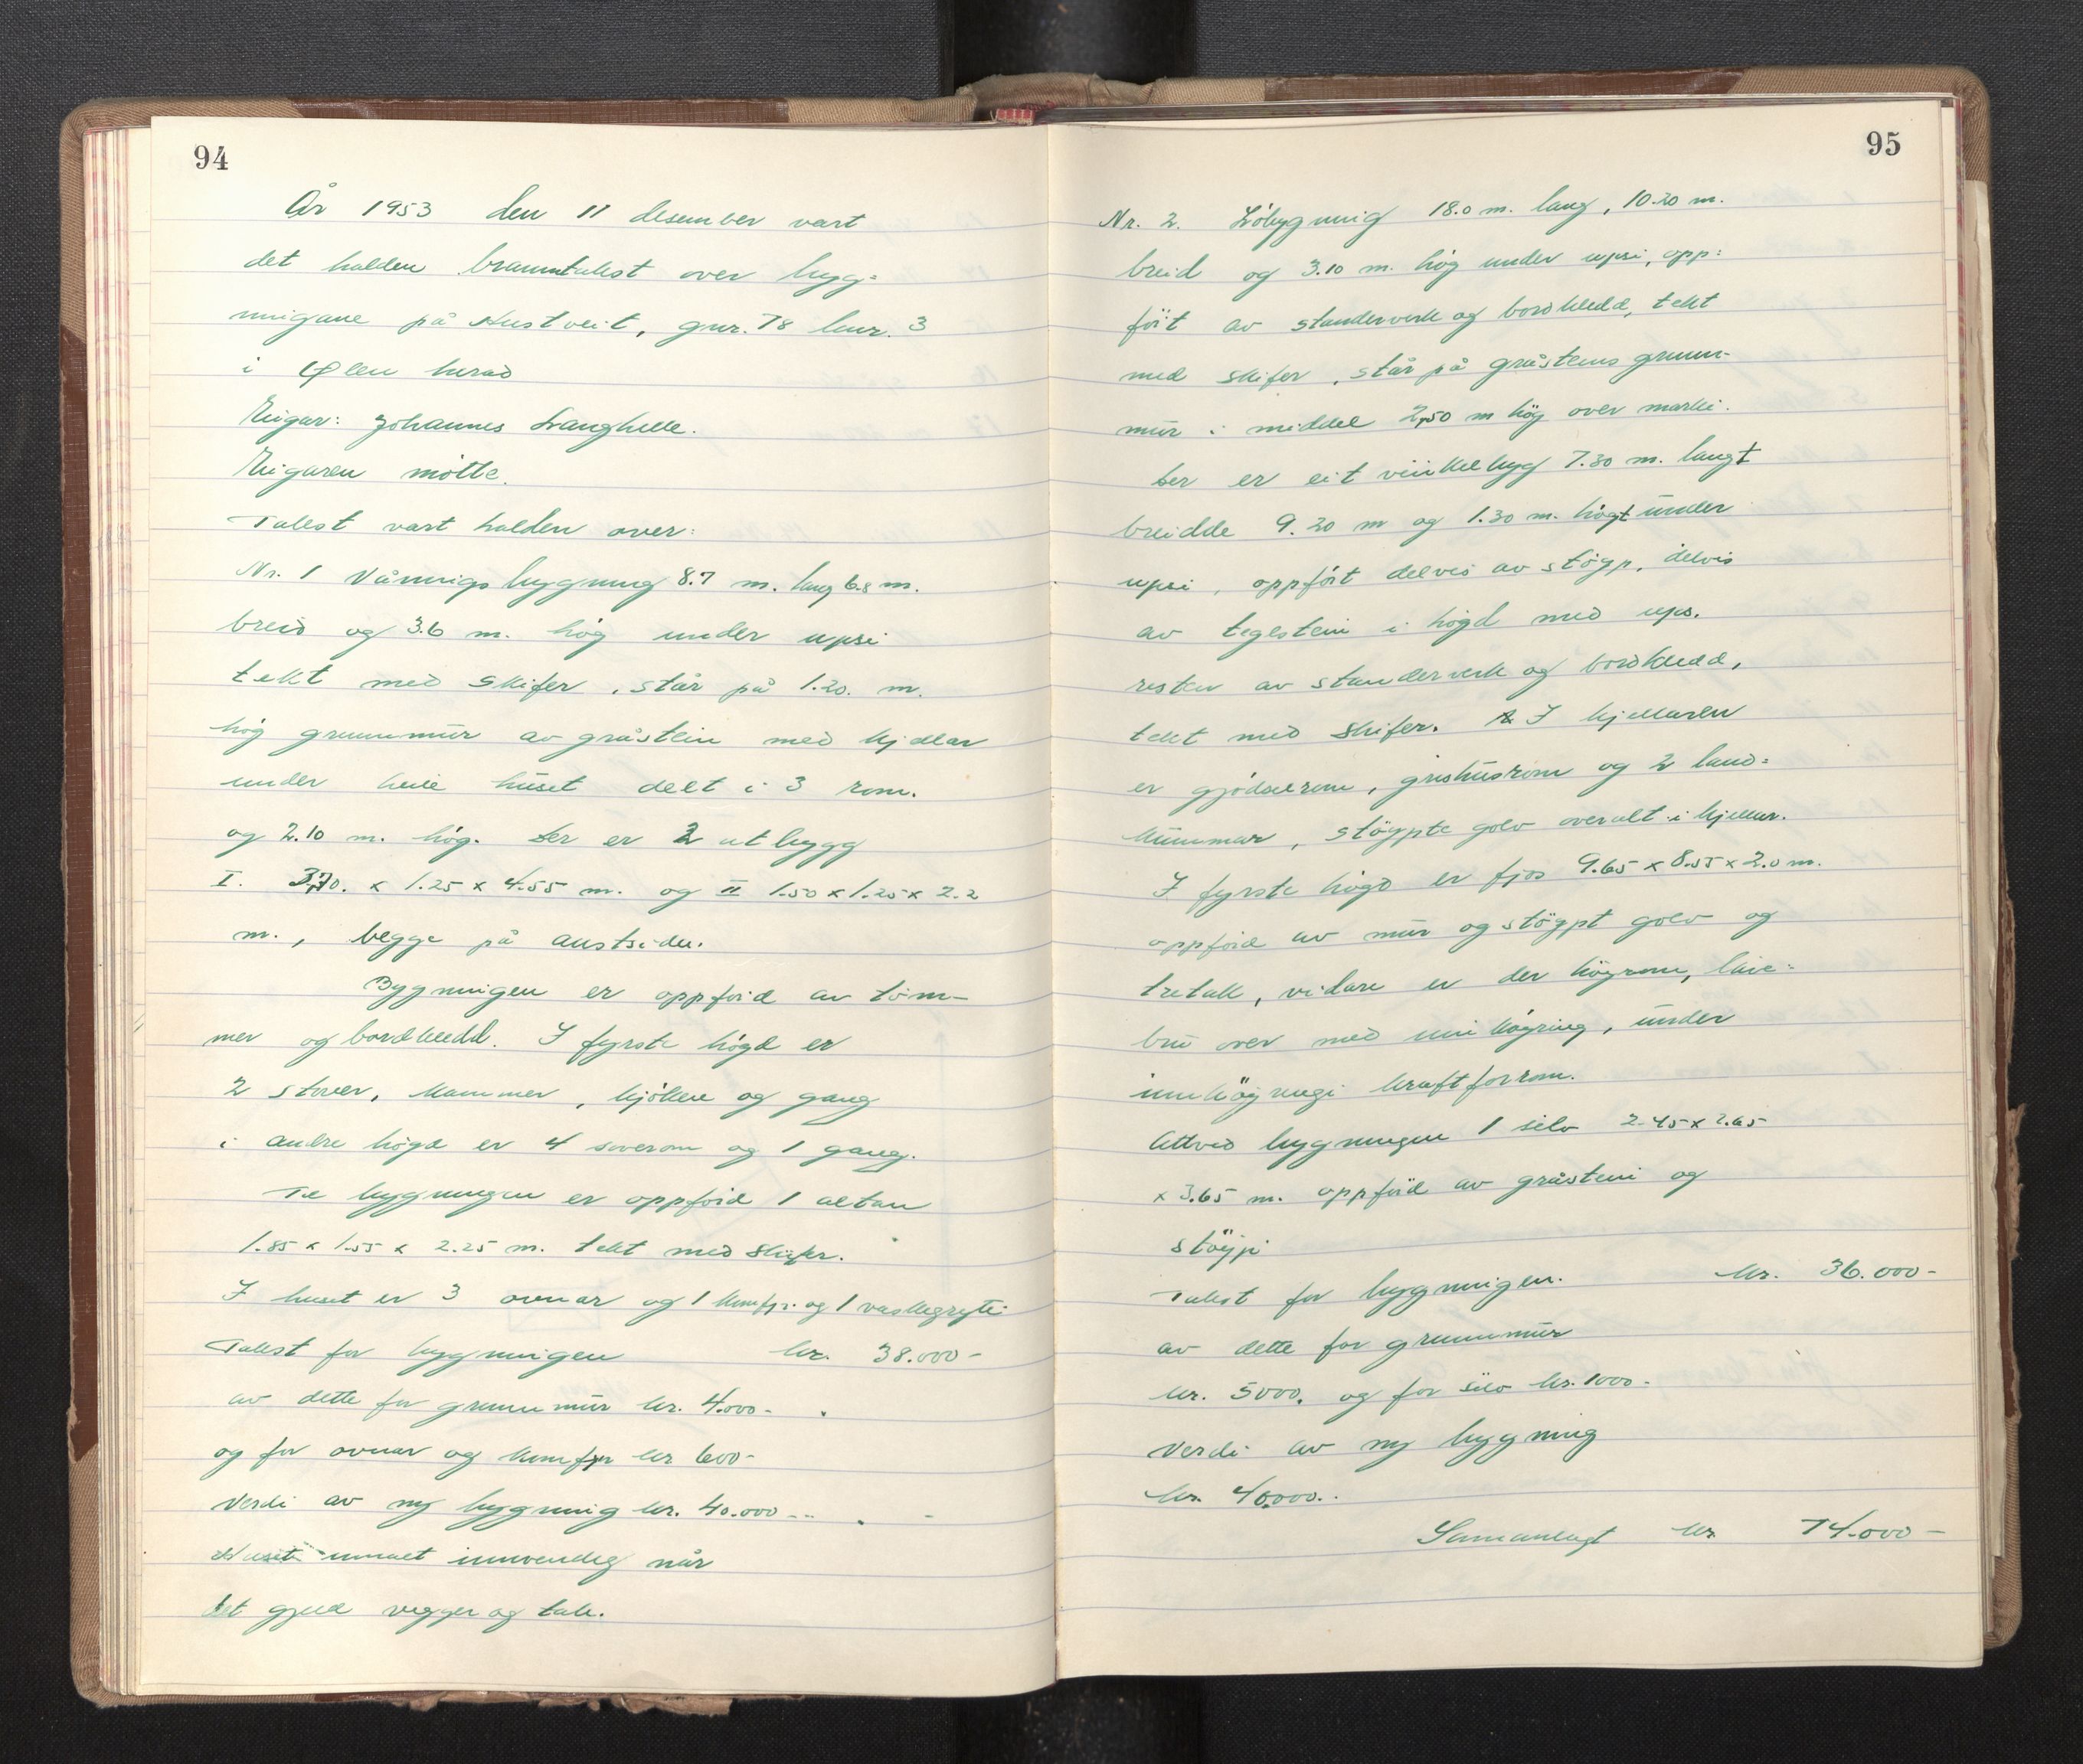 94
År 1953 den 11 desember vart
det halden branntakst over byg=
ningane på Austveit, gnr. 78 bnr. 3
i Ølen herad
Eigar: Johannes Langhelle.
Eigaren møtte.
Takst vart halden over:
Nr. 1 Våningsbygning 8.7 m. lang 6.8 m.
breid og 3.6 m. høg under upsi
tekt med skifer, står på 1.20. m.
høg grunnmur av gråstein med kjellar
under heile huset delt i 3 rom.
og 2.10 m. høg. Der er 2 utbygg
I. 3,70. x 1.25 x 4.55 m. og II 1.50 x 1.25 x 2.2
m., begge på austsida.
Bygningen er oppførd av tøm-
mer og bordkledd. I fyrste høgd er
2 stover, kammer, kjøken og gang
i andre høgd er 4 soverom og 1 gang.
Te bygningen er oppførd 1 altan
1.85 x 1.55 x 2.25 m. tekt med skifer.
I huset er 3 ovnar og 1 komfyr og 1 vaskegryte
Takst for bygningen kr. 38.000-
av dette for grunnmur kr. 4.000-
og for ovnar og komfyr kr 600-
Verdi av ny bygning kr. 40.000--
Huset umalt innvendig når
det gjeld vegger og tak.
95
Nr. 2. Løbygning 18.0 m. lang, 10.20 m.
breid og 3.10 m. høg under upsi, opp=
ført av standerverk og bordkledd, tekt
med skifer, står på gråsteins grunn-
mur i middel 2,50 m høg over marki.
Der er eit vinkelbygg 7.30 m. langt
breidde 9.20 m og 1.30 m. høgt under
upsi, oppført delvis av støyp, delvis
av teglstein i høgd med ups.
resten av standerverk og bordkledd,
tekt med skifer. I kjellaren
er gjødselrom, grishusrom og 2 land=
kummar, støypte golv overalt i kjellar.
I fyrste høgd er fjøs 9.65 x 8.55 x 2.0 m.
oppførd av mur og støypt golv og
tretak, vidare er der høyrom, låve=
bru over med innkøyring, under
innkøyringi kraftforrom.
Attved bygningen 1 silo 2.45 x 2.65
x 3.65 m. oppførd av gråstein og
støyp
Takst for bygningen. kr. 36.000-
av dette for grunnmur
kr. 5000. og for silo kr. 1000-
Verdi av ny bygning
kr. 40.000..
Samanlagt kr. 74.000-